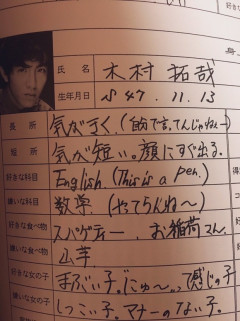 身
氏 名 木村 拓哉
生年月日 S47. 11. 13
長 所 気がきく。(自分で言ってんじゃねぇー)
短 所 気が短い。顔にすぐ出る。
好きな科目 English (This is a pen.)
嫌いな科目 数学 (やってらんね〜)
好きな食べ物 スパゲティー、お稲荷さん
嫌いな食べ物 山芋
好きな女の子 まぶい子。じゅ〜。って感じの子
嫌いな女の子 しつこい子。マナーのない子。